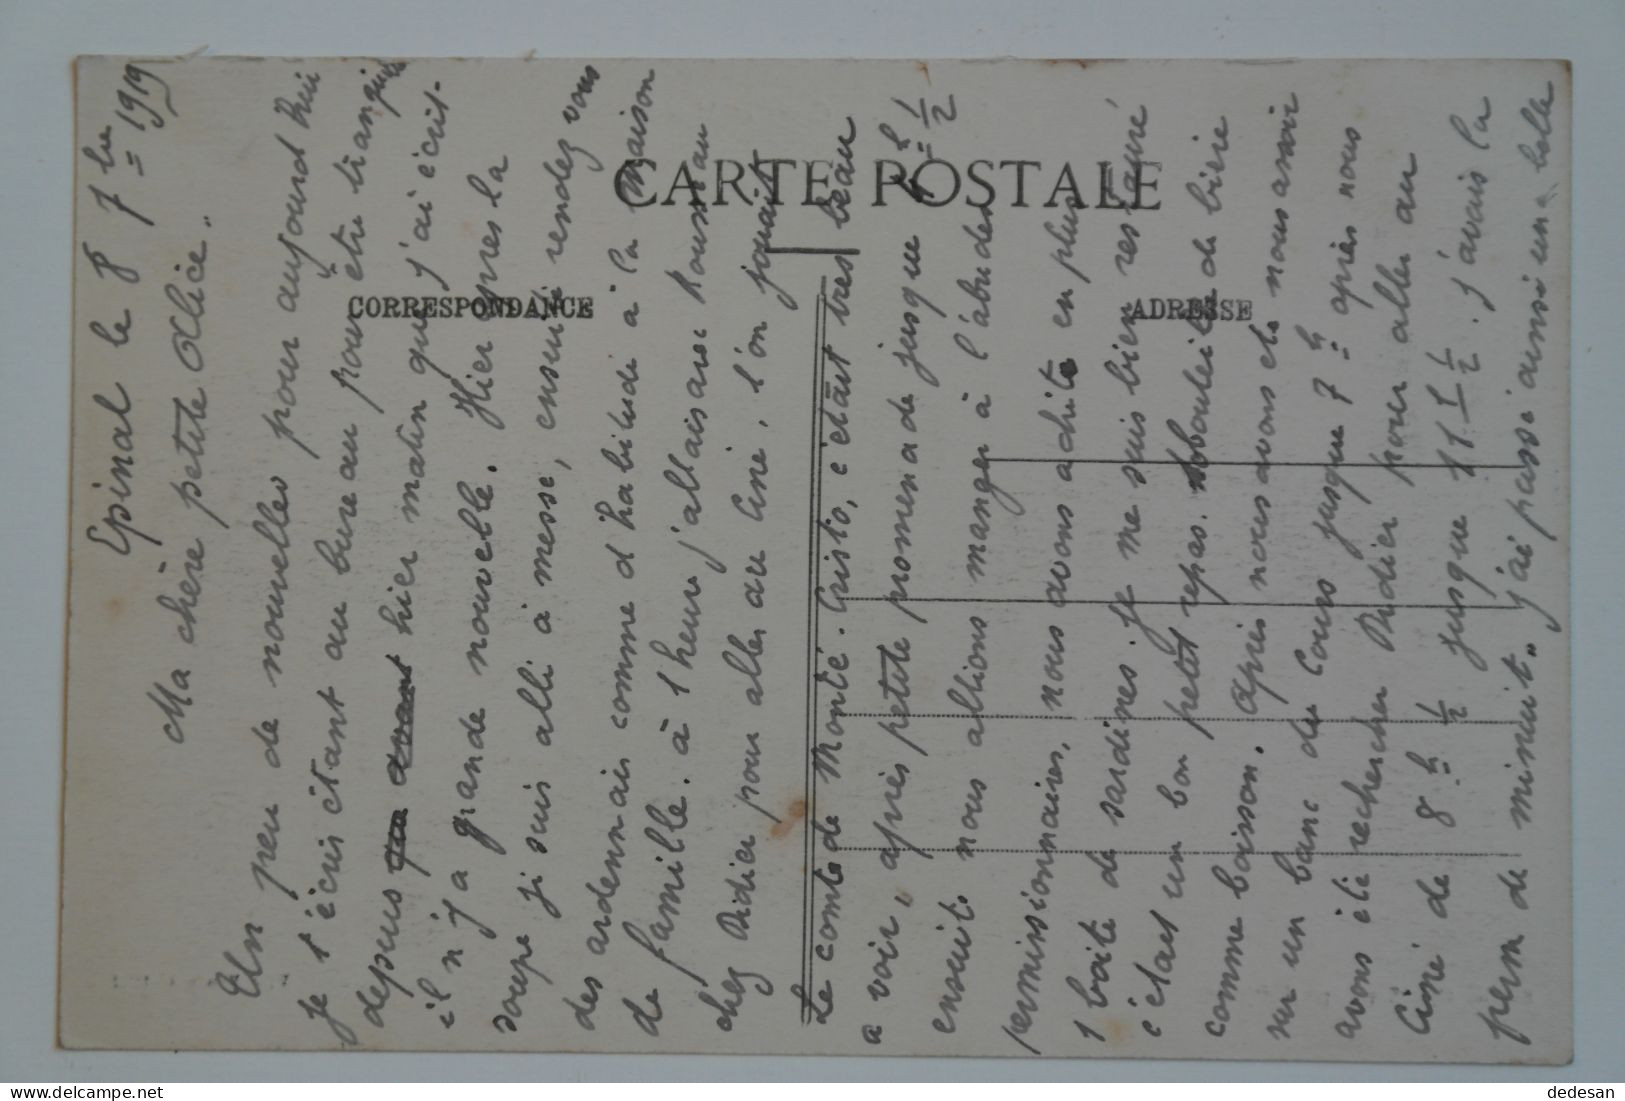 CARTE POSTALE
CORRESPONDANCE
ADRESSE
Epinal le 8 7bre 1919
Ma chère petite Alice.
Un peu de nouvelles pour aujourd'hui
je t'écris étant au bureau pour être tranquille
depuis hier matin que j'ai écrit.
il n'y a grande nouvelle. Hier apres la
soupe je suis allé à messe, ensuite rendez vous
des ardennais comme d'habitude à la maison
de famille. à 1 heure j'allais avec
chez Didier pour aller au Ciné, l'on jouait
Le comte de Monté. Cristo, c'était très beau
a voir, après petite promenade jusque 4h 1/2
ensuite nous allions manger à l'abri des
permissionnaires, nous avons acheté en plus
1 boite de sardines. Je me suis bien restauré
c'était un bon petit repas. bouteille de bière
comme boisson. Après nous avons été nous assoir
sur un banc du Cours jusque 7h après nous
avons été rechercher Didier pour aller au
Ciné de 8h 1/2 jusque 11 1/2. j'avais la
perm de minuit. j'ai passé ainsi une belle
dedesan